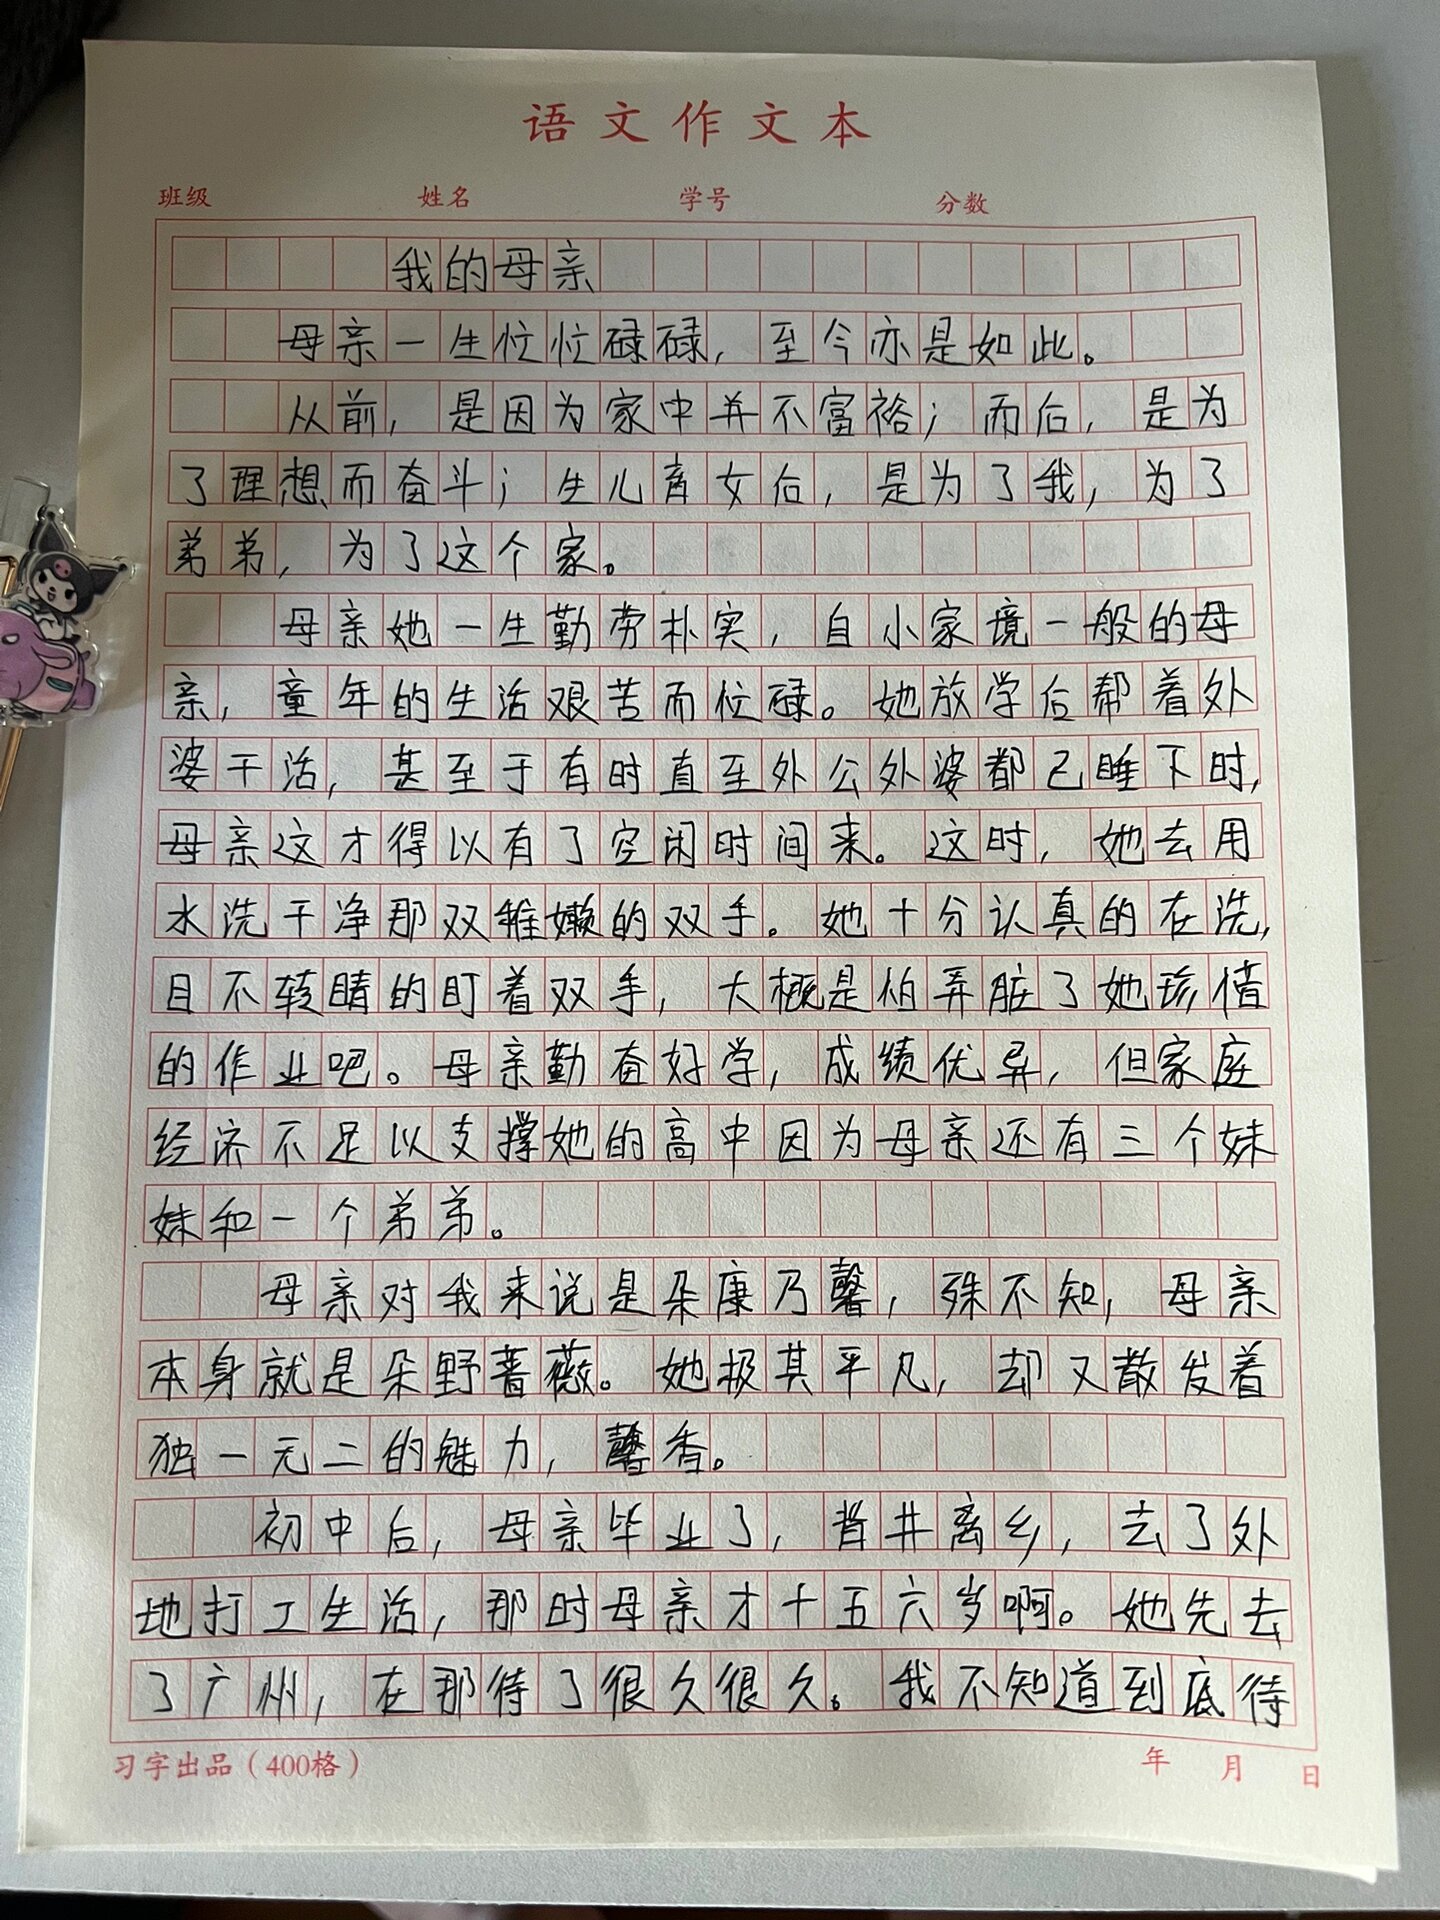 语文作文本
班级 姓名 学号 分数
我的母亲
母亲一生忙忙碌碌，至今亦是如此。
从前，是因为家中并不富裕；而后，是为
了理想而奋斗；生儿育女后，是为了我，为了
弟弟，为了这个家。
母亲她一生勤劳朴实，自小家境一般的母
亲，童年的生活艰苦而忙碌。她放学后帮着外
婆干活，甚至于有时直至外公外婆都已睡下时，
母亲这才得以有了空闲时间来。这时，她去用
水洗干净那双稚嫩的双手。她十分认真的在洗，
目不转睛的盯着双手，大概是怕弄脏了她珍惜
的作业吧。母亲勤奋好学，成绩优异，但家庭
经济不足以支撑她的高中因为母亲还有三个妹
妹和一个弟弟。
母亲对我来说是朵康乃馨，殊不知，母亲
本身就是朵野蔷薇。她极其平凡，却又散发着
独一无二的魅力，馨香。
初中后，母亲毕业了，背井离乡，去了外
地打工生活，那时母亲才十五六岁啊。她先去
了广州，在那待了很久很久。我不知道到底待
习字出品（400格） 年 月 日